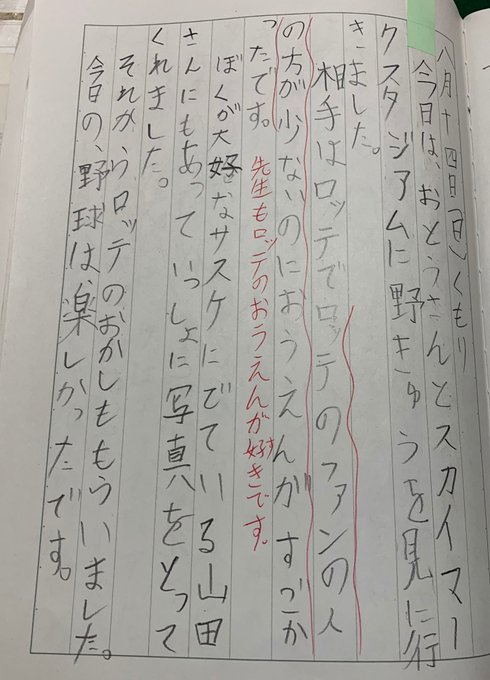 八月十四日 日 くもり
今日は、おとうさんとスカイマー
クスタジアムに野きゅうを見に行
きました。
相手はロッテでロッテのファンの人
の方が少ないのにおうえんがすごか
ったです。
先生もロッテのおうえんが好きです。
ぼくが大好きなサスケにでている山田
さんにもあっていっしょに写真をとって
くれました。
それからロッテのおかしももらいました。
今日の、野球は、楽しかったです。